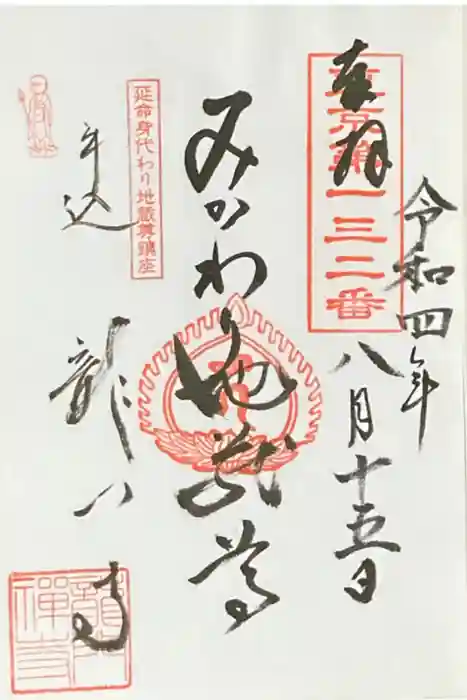 令和四年
八月十五日
奉拝
東京第一三二番
みかわり地蔵尊
延命身代わり地蔵尊鎮座
牛込
龍門寺
龍門
禪寺